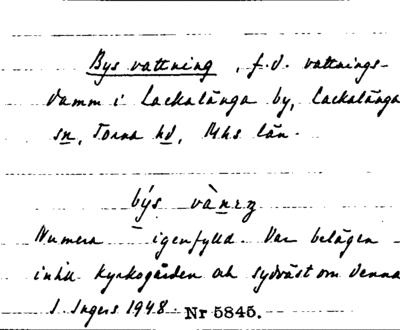 Bys vattning, f.d. vattnings-
damm i Lackalänga by, Lackalänga
sn, Torna hd, Mhs län.
býs vàneŋ
Numera igenfylld. Var belägen
intill kyrkogården och sydväst om denna
I. Ingers 1948 Nr 5845.